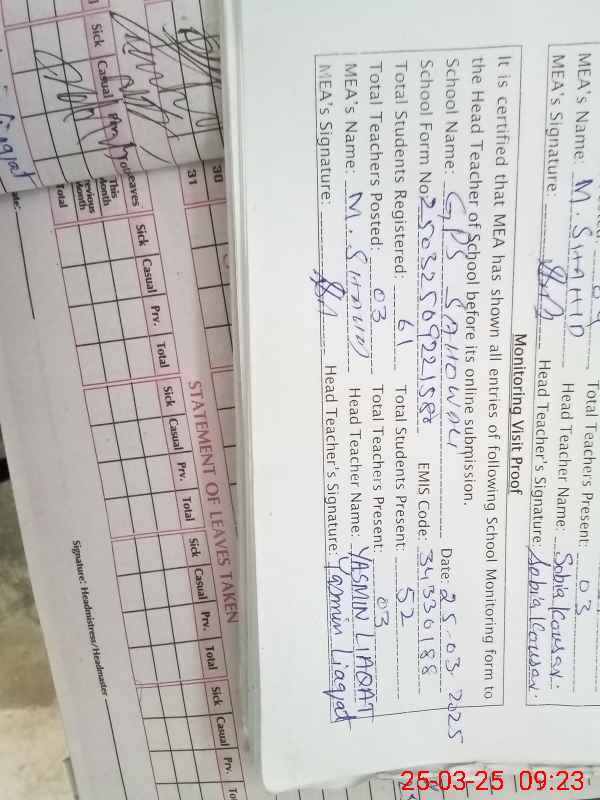 MEA's Name: M. SHAHID Head Teacher Name: Sobia Kousar.
MEA's Signature: Head Teacher's Signature: Sobia Kousar.
Total Teachers Present: 03
Monitoring Visit Proof
It is certified that MEA has shown all entries of following School Monitoring form to
the Head Teacher of School before its online submission.
School Name: GPS SAHOWALI Date: 25-03-2025
School Form No: EMIS Code: 34330188
Total Students Registered: 61 Total Students Present: 52
Total Teachers Posted: 03 Total Teachers Present: 03
MEA's Name: M. SHAHID Head Teacher Name: YASMIN LIAQAT
MEA's Signature: Head Teacher's Signature: Yasmin Liaqat
Sick Casual Prv.
Liaqat
30
31
Leaves
This Month
Previous Month
Total
STATEMENT OF LEAVES TAKEN
Sick Casual Prv. Total Sick Casual Prv. Total Sick Casual Prv. Total Sick Casual Prv.
Signature: Headmistress/Headmaster
25-03-25 09:23